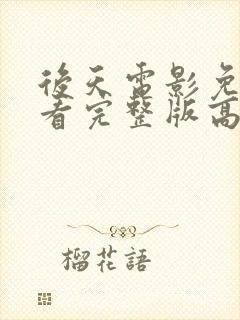 後天電影免
看完整版高
榴花語